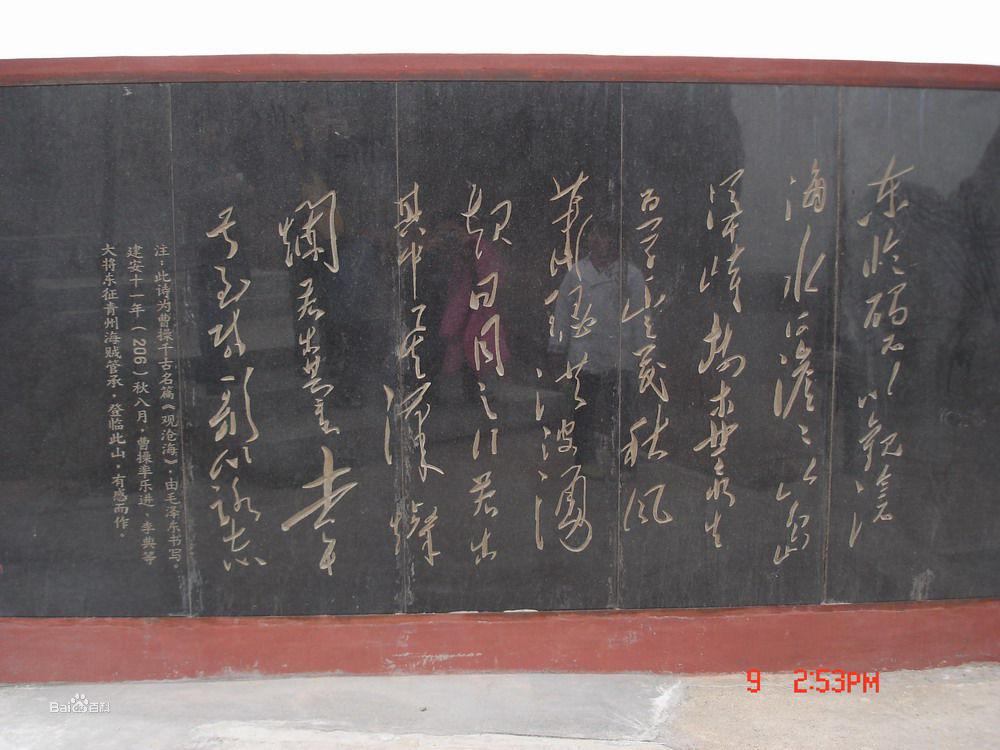 东临碣石以观沧
海水何澹澹山岛
竦峙树木丛生
百草丰茂秋风
萧瑟洪波涌
起日月之行若出
其中星汉灿
烂若出其里幸
甚至哉歌以咏志
注：此诗为曹操千古名篇《观沧海》，由毛泽东书写。
建安十一年（206）秋八月，曹操率乐进、李典等
大将东征青州海贼管承，登临此山，有感而作。
9 2:53PM
Bai百科